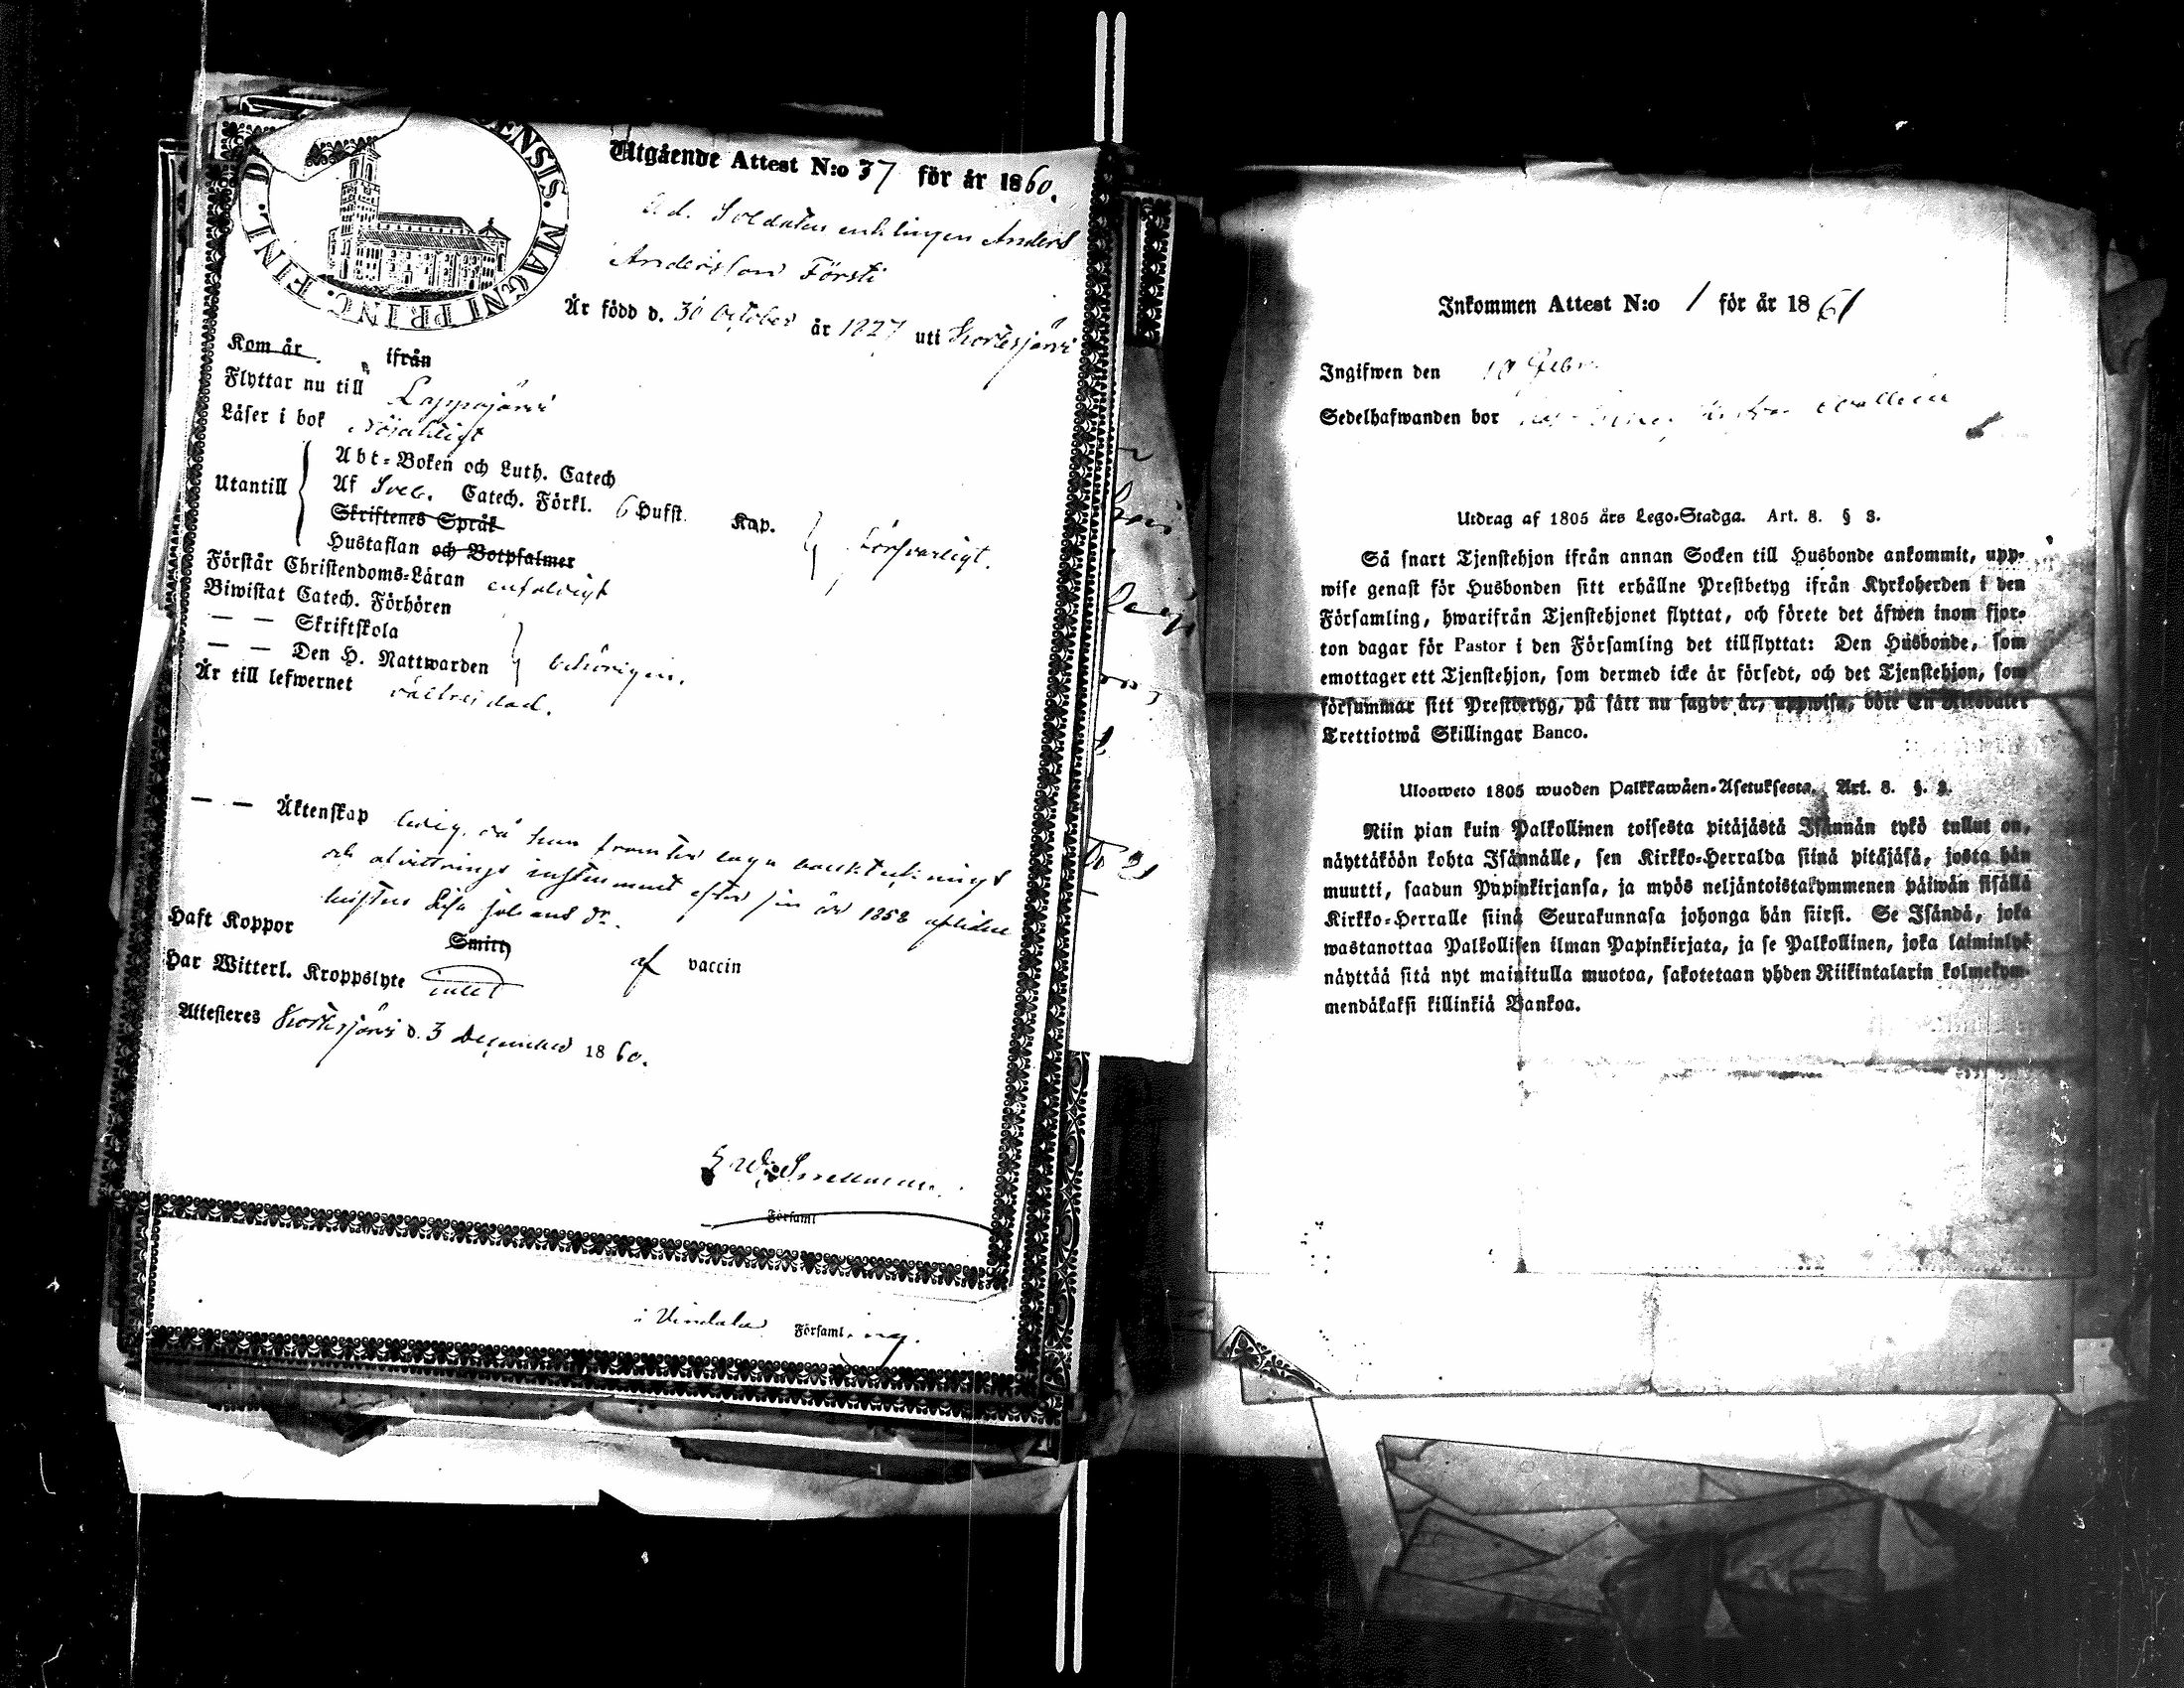 ENSIS. MAGNI PRINC. FINL. D
Utgående Attest N:o 37 för år 1860.
A.d. Soldaten enklingen Anders
Andersson Försti
Är född d. 30 October år 1827 uti Kortesjärvi
Kom år ifrån
Flyttar nu till Lappajärvi
Läser i bok Nöjaktigt
Utantill
Abt-Boken och Luth. Catech
Af Sveb. Catech. Förkl. 6 Hufst. Kap.
Skriftenes Språk
Hustaflan och Botpsalmer
försvarligt.
Förstår Christendoms-Läran enfaldigt
Biwistat Catech. Förhören
— — Skriftskola
— — Den H. Nattwarden
behörigen.
Är till lefwernet välfrejdad.
— — Äktenskap ledig, då han framter laga
och afvittrings instrument efter sin år 1858 aflidne
hustru Lisa Johans dr.
Haft Koppor Smitt af vaccin
Har Witterl. Kroppslyte intet
Attesteres Kortesjärvi d. 3 December 1860.
Församl
i Vindala Församling.
Inkommen Attest N:o 1 för år 1861
Ingifwen den 10 Febr.
Sedelhafwanden bor
Utdrag af 1805 års Lego-Stadga. Art. 8. § 3.
Så snart Tjenstehjon ifrån annan Socken till Husbonde ankommit, upp-
wise genast för Husbonden sitt erhållne Prestbetyg ifrån Kyrkoherden i den
Församling, hwarifrån Tjenstehjonet flyttat, och förete det äfwen inom fjor-
ton dagar för Pastor i den Församling det tillflyttat: Den Husbonde, som
emottager ett Tjenstehjon, som dermed icke är försedt, och det Tjenstehjon, som
försummar sitt Prestbetyg, på sätt nu sagdt är, uppwisa, böte En Riksdaler
Trettiotwå Skillingar Banco.
Ulosweto 1805 wuoden Palkkawäen-Asetuksesta. Art. 8. §. 3.
Niin pian kuin Palkollinen toisesta pitäjästä Isännän tykö tullut on,
näyttäköön kohta Isännälle, sen Kirkko-Herralda siinä pitäjäsä, josta hän
muutti, saadun Papinkirjansa, ja myös neljäntoistakymmenen päiwän sisällä
Kirkko-Herralle siinä Seurakunnasa johonga hän siirsi. Se Isändä, joka
wastanottaa Palkollisen ilman Papinkirjata, ja se Palkollinen, joka laiminlyö
näyttää sitä nyt mainitulla muotoa, sakotetaan yhden Riikintalarin kolmekym-
mendäkaksi killinkiä Bankoa.